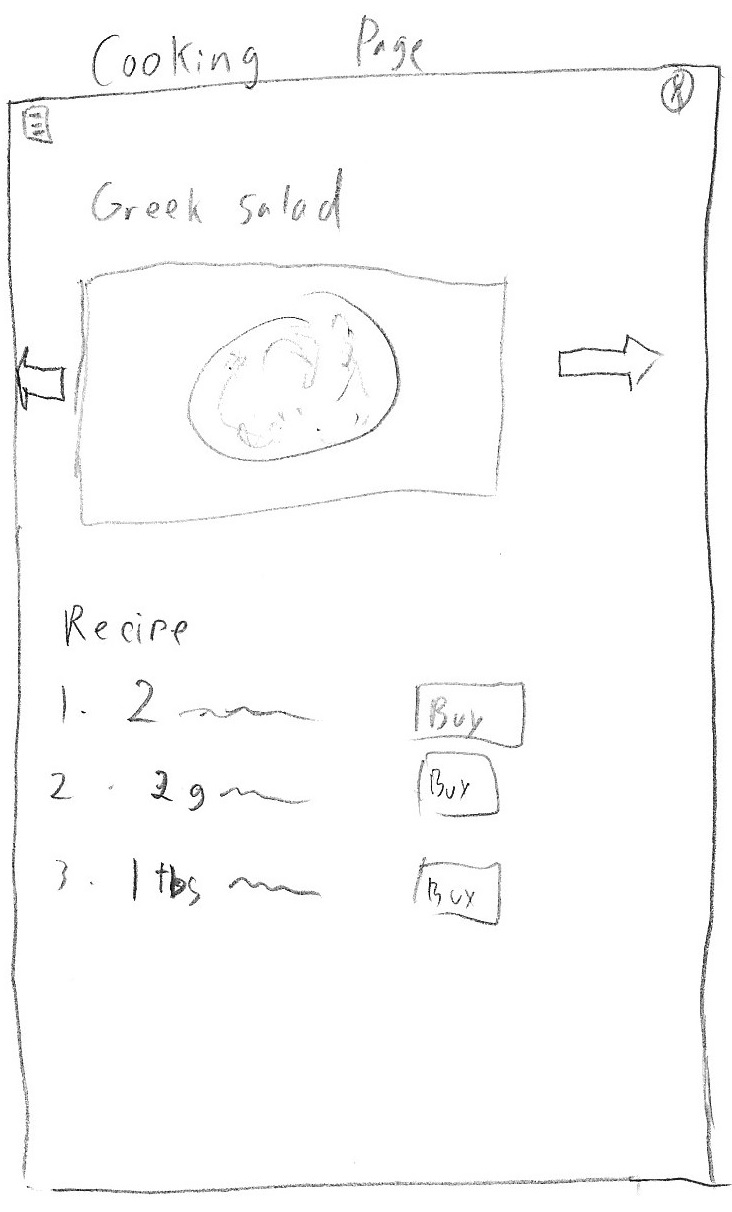 Cooking Page
Greek salad
Recipe
1. 2
Buy
2. 2g
Buy
3. 1 tbs
Buy